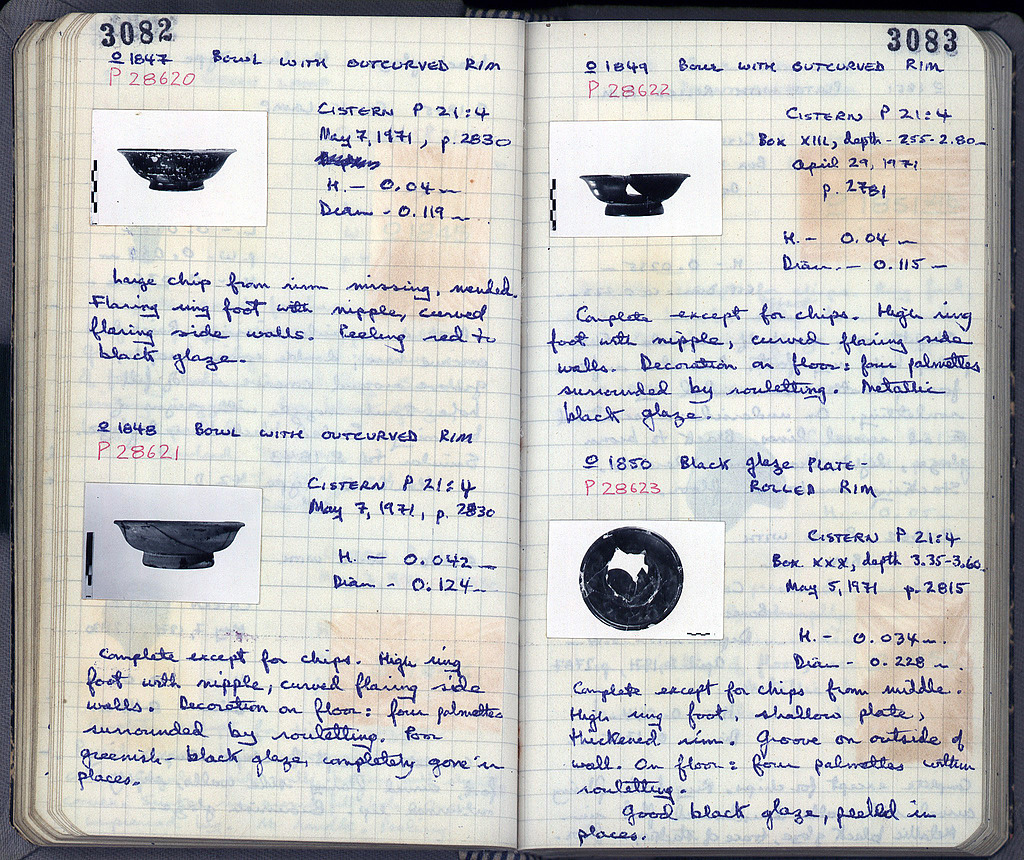 3082
O 1847 BOWL WITH OUTCURVED RIM
P 28620
CISTERN P 21:4
May 7, 1971, p. 2830
H. - 0.04 m
Diam - 0.119 m
Large chip from rim missing, mended.
Flaring ring foot with nipple, curved
flaring side walls. Peeling red to
black glaze.
O 1848 BOWL WITH OUTCURVED RIM
P 28621
CISTERN P 21:4
May 7, 1971, p. 2830
H. - 0.042 m
Diam - 0.124 m
Complete except for chips. High ring
foot with nipple, curved flaring side
walls. Decoration on floor: four palmettes
surrounded by rouletting. Poor
greenish-black glaze, completely gone in
places.
3083
O 1849 BOWL WITH OUTCURVED RIM
P 28622
CISTERN P 21:4
Box XIII, depth - 2.55-2.80 m
April 29, 1971
p. 2781
H. - 0.04 m
Diam. - 0.115 m
Complete except for chips. High ring
foot with nipple, curved flaring side
walls. Decoration on floor: four palmettes
surrounded by rouletting. Metallic
black glaze.
O 1850 Black glaze PLATE-
P 28623 ROLLED RIM
CISTERN P 21:4
Box XXX, depth 3.35-3.60
May 5, 1971 p. 2815
H. - 0.034 m.
Diam - 0.228 m.
Complete except for chips from middle.
High ring foot, shallow plate,
thickened rim. Groove on outside of
wall. On floor: four palmettes within
rouletting.
Good black glaze, peeled in
places.